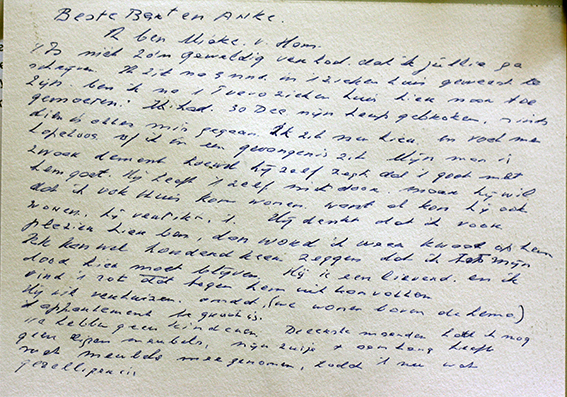 Beste Bart en Anke.
Ik ben Mieke v. Hom.
Is niet zo'n geweldig verhaal dat ik jullie ga
schrijven. Ik zit na 5 mnd in 1 ziekenhuis geweest te
zijn. ben ik na 1 ziekenhuis hier naar toe
gemoeten. Ik had 30 Dec mijn heup gebroken, sinds
dien is alles mis gegaan. Ik zit nu hier, en voel me
hopeloos of ik in een gevangenis zit. Mijn man is
zwaar dement hoewel hij zelf zegt dat 't goed met
hem gaat. Hij heeft 't zelf niet door. maar hij wil
dat ik ook thuis kom wonen, want al kan hij ook
wonen, hij 1. Hij denkt dat ik voor
plezier hier ben, dan word ik weer kwaad op hem
Ik kan wel honderd keer zeggen dat ik tot mijn
dood hier moet blijven. Hij is een lieverd. en ik
vind 't rot dat tegen hem
Hij wil verhuizen. omdat, (we wonen boven de hema)
't appartement te groot is.
We hebben geen kinderen. De eerste maanden had ik nog
geen eigen meubels, mijn zusje + aanhang heeft
wat meubels mee genomen, zodat 't nu wat
gezelliger is